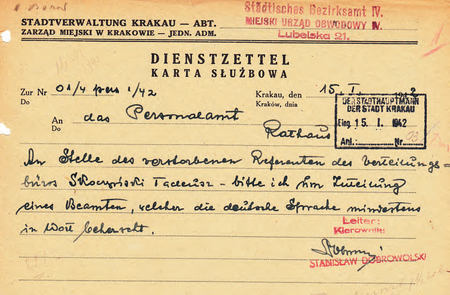 STADTVERWALTUNG KRAKAU — ABT.
ZARZĄD MIEJSKI W KRAKOWIE — JEDN. ADM.
Städtisches Bezirksamt IV.
MIEJSKI URZĄD OBWODOWY IV.
Lubelska 21.
DIENSTZETTEL
KARTA SŁUŻBOWA
Zur Nr 01/4 pers 1/42
Do
Krakau, den 15. I. 1942
Kraków, dnia
An das Personalamt
Do
Rathaus
DER STADTHAUPTMANN
DER STADT KRAKAU
Eing. 15. I. 1942
Anl.: Nr.:
An Stelle des verstorbenen Referenten des Verteilungs=
büros Skoczyński Tadeusz - bitte ich um Zuteilung
eines Beamten, welcher die deutsche Sprache mindestens
in Wort beherrscht.
Leiter:
Kierownik:
STANISŁAW DOBROWOLSKI